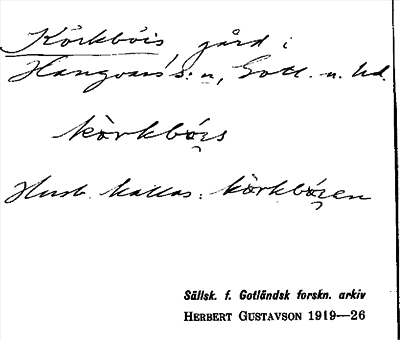 Körkbóis, gård i
Hangvars s:n, Gotl. n. hd.
kòrkbó̜is
Husb. kallas: kòrkbó̜i̜en
Sällsk. f. Gotländsk forskn. arkiv
HERBERT GUSTAVSON 1919—26